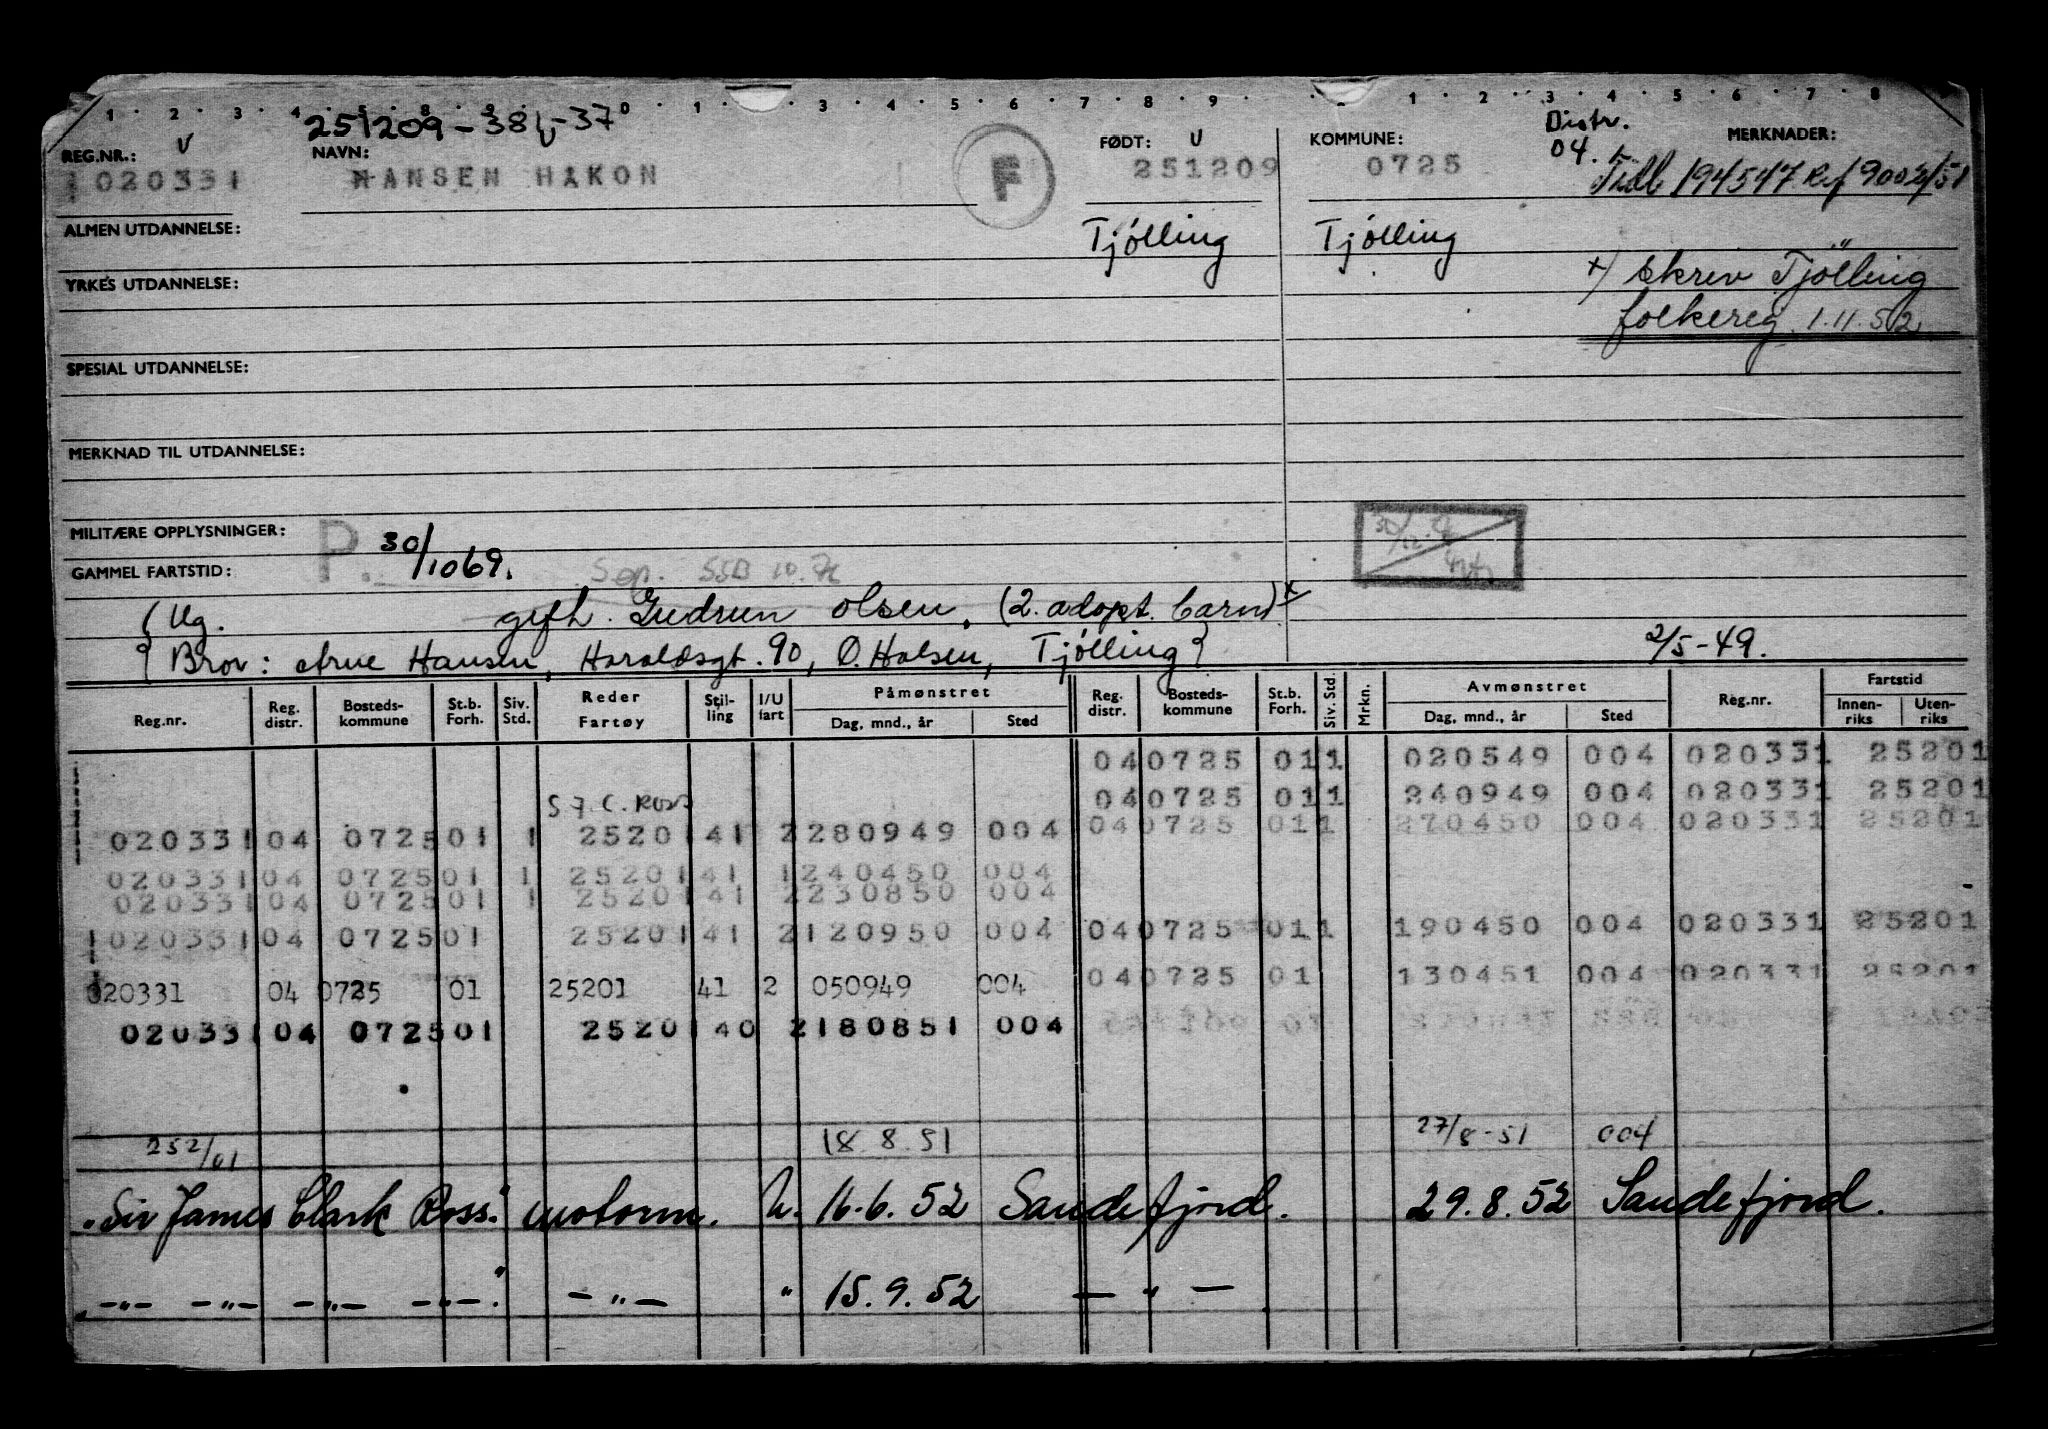 1 · 2 · 3 · 4 · 5 · 8 · 9 · 0 · 1 · 3 · 4 · 5 · 6 · 7 · 8 · 9 · 1 · 2 · 3 · 4 · 5 · 6 · 7 · 8
251209 - 37
Distr.
REG.NR.: V NAVN: FØDT: V KOMMUNE: 04. MERKNADER:
020331 HANSEN HAKON F 251209 0725 194547 Ref 9002/51
ALMEN UTDANNELSE: Tjölling Tjölling
YRKES UTDANNELSE: x) Skrev Tjölling
folkereg. 1.11.52
SPESIAL UTDANNELSE:
MERKNAD TIL UTDANNELSE:
MILITÆRE OPPLYSNINGER: P. 30/1069.
GAMMEL FARTSTID: Sep. SSB 10.76
( Ug. gift. Gudrun Olsen. (2. adopt. barn) x
{ Bror: Arne Hansen, Haraldsgt. 90, Ø. Halsen, Tjölling } 2/5-49.
Reg.nr. Reg. distr. Bosteds-kommune St.b. Forh. Siv. Std. Reder Fartøy Stil-ling I/U fart Påmønstret Dag, mnd., år Sted Reg. distr. Bosteds-kommune St.b. Forh. Siv. Std. Mrkn. Avmønstret Dag, mnd., år Sted Reg.nr. Fartstid Innen-riks Uten-riks
04 0725 01 1 020549 004 020331 25201
S J. C. Ross 04 0725 01 1 240949 004 020331 25201
020331 04 0725 01 1 25201 41 2 280949 004 04 0725 01 1 270450 004 020331 25201
020331 04 0725 01 1 25201 41 1 240450 004
020331 04 0725 01 1 25201 41 2 230850 004
020331 04 0725 01 25201 41 2 120950 004 04 0725 01 1 190450 004 020331 25201
020331 04 0725 01 25201 41 2 050949 004 04 0725 01 130451 004 020331 25201
020331 04 0725 01 25201 40 2 180851 004
252/01 18.8.51 27/8-51 004
"Sir James Clark Ross." motorm. U. 16.6.52 Sandefjord. 29.8.52 Sandefjord.
„ —"— —"— —"— —"—." —"— " 15.9.52 — " —